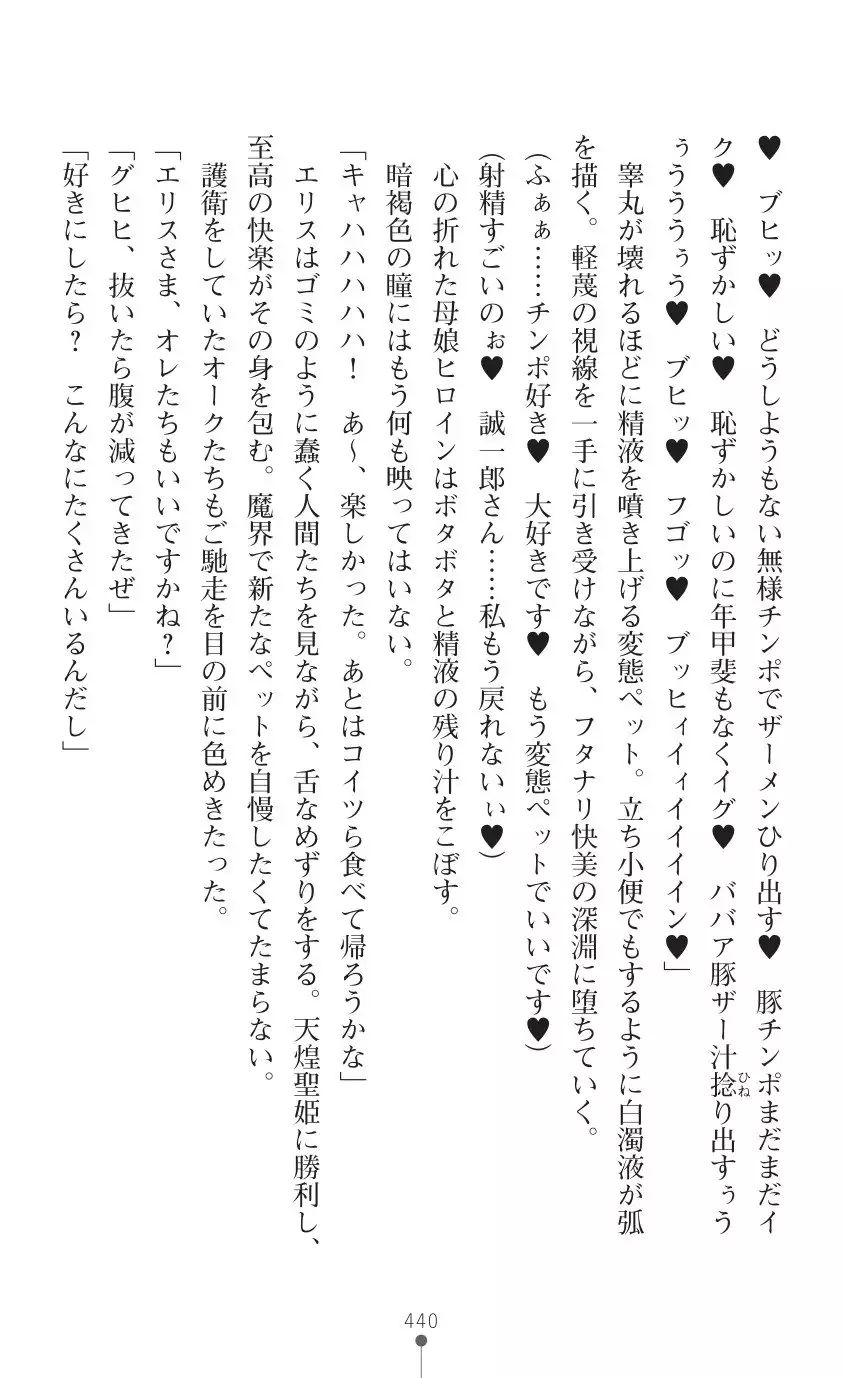 ♥　ブヒッ♥　どうしようもない無様チンポでザーメンひり出す♥　豚チンポまだまだイ
ク♥　恥ずかしい♥　恥ずかしいのに年甲斐もなくイグ♥　ババア豚ザー汁捻り出すぅう
ひね
ぅうううぅう♥　ブヒッ♥　フゴッ♥　ブッヒィイィイイイイン♥」
睾丸が壊れるほどに精液を噴き上げる変態ペット。立ち小便でもするように白濁液が弧
を描く。軽蔑の視線を一手に引き受けながら、フタナリ快美の深淵に堕ちていく。
(ふぁぁ……チンポ好き♥　大好きです♥　もう変態ペットでいいです♥)
(射精すごいのぉ♥　誠一郎さん……私もう戻れないぃ♥)
心の折れた母娘ヒロインはボタボタと精液の残り汁をこぼす。
暗褐色の瞳にはもう何も映ってはいない。
「キャハハハハハ！　あ〜、楽しかった。あとはコイツら食べて帰ろうかな」
エリスはゴミのように蠢く人間たちを見ながら、舌なめずりをする。天煌聖姫に勝利し、
至高の快楽がその身を包む。魔界で新たなペットを自慢したくてたまらない。
護衛をしていたオークたちもご馳走を目の前に色めきたった。
「エリスさま、オレたちもいいですかね？」
「グヒヒ、抜いたら腹が減ってきたぜ」
「好きにしたら？　こんなにたくさんいるんだし」
440